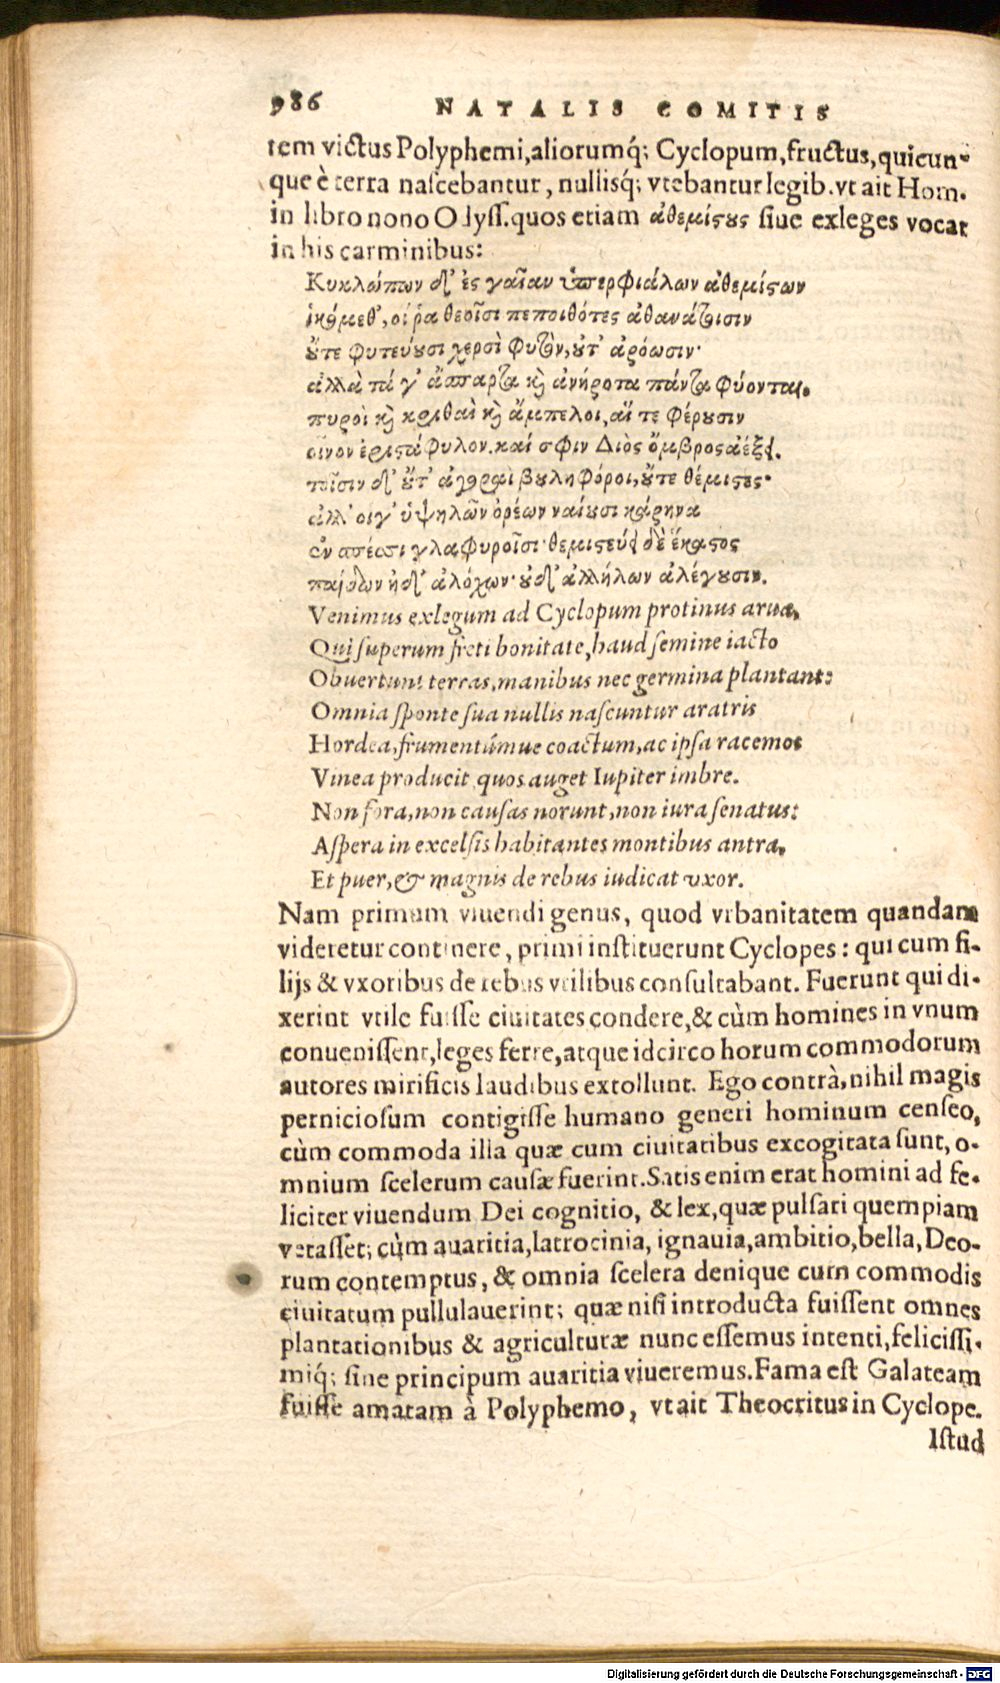 986 NATALIS COMITIS
tem victus Polyphemi,aliorumq́; Cyclopum,fructus,quicun-
que è terra nascebantur, nullisq́; vtebantur legib.vt ait Hom.
in libro nono Odyss.quos etiam ἀθεμίϛους siue exleges vocat
in his carminibus:
Κυκλώπων δ' ἐς γαῖαν ὑπερφιάλων ἀθεμίϛων
ἱκόμεθ', οἵ ῥα θεοῖσι πεποιθότες ἀθανάτοισιν
οὔτε φυτεύουσι χερσὶ φυτὸν, οὔτ' ἀρόωσιν·
ἀλλὰ τά γ' ἄσπαρτα καὶ ἀνήροτα πάντα φύονται.
πυροὶ καὶ κριθαὶ καὶ ἄμπελοι, αἵ τε φέρουσιν
οἶνον ἐριϛάφυλον. καί σφιν Διὸς ὄμβρος ἀέξει.
τοῖσιν δ' οὔτ' ἀγοραὶ βουληφόροι, οὔτε θέμιϛες·
ἀλλ' οἵγ' ὑψηλῶν ὀρέων ναίουσι κάρηνα
ἐν σπέσσι γλαφυροῖσι· θεμιϛεύει δὲ ἕκαϛος
παίδων ἠδ' ἀλόχων· οὐδ' ἀλλήλων ἀλέγουσιν.
Venimus exlegum ad Cyclopum protinus arua,
Qui superum freti bonitate, haud semine iacto
Obuertunt terras, manibus nec germina plantant:
Omnia sponte sua nullis nascuntur aratris
Hordea, frumentúmue coactum, ac ipsa racemos
Vinea producit, quos auget Iupiter imbre.
Non fora, non causas norunt, non iura senatus:
Aspera in excelsis habitantes montibus antra,
Et puer, & magnis de rebus iudicat vxor.
Nam primum viuendi genus, quod vrbanitatem quandam
videretur continere, primi instituerunt Cyclopes: qui cum fi-
lijs & vxoribus de rebus vtilibus consultabant. Fuerunt qui di-
xerint vtile fuisse ciuitates condere, & cùm homines in vnum
conuenissent, leges ferre, atque idcirco horum commodorum
autores mirificis laudibus extollunt. Ego contrà, nihil magis
perniciosum contigisse humano generi hominum censeo,
cùm commoda illa quæ cum ciuitatibus excogitata sunt, o-
mnium scelerum causæ fuerint. Satis enim erat homini ad fe-
liciter viuendum Dei cognitio, & lex, quæ pulsari quempiam
vetasset; cùm auaritia, latrocinia, ignauia, ambitio, bella, Deo-
rum contemptus, & omnia scelera denique cum commodis
ciuitatum pullulauerint; quæ nisi introducta fuissent omnes
plantationibus & agriculturæ nunc essemus intenti, felicissi-
miq́; sine principum auaritia viueremus. Fama est Galateam
fuisse amatam à Polyphemo, vt ait Theocritus in Cyclope.
Istud
Digitalisierung gefördert durch die Deutsche Forschungsgemeinschaft - DFG